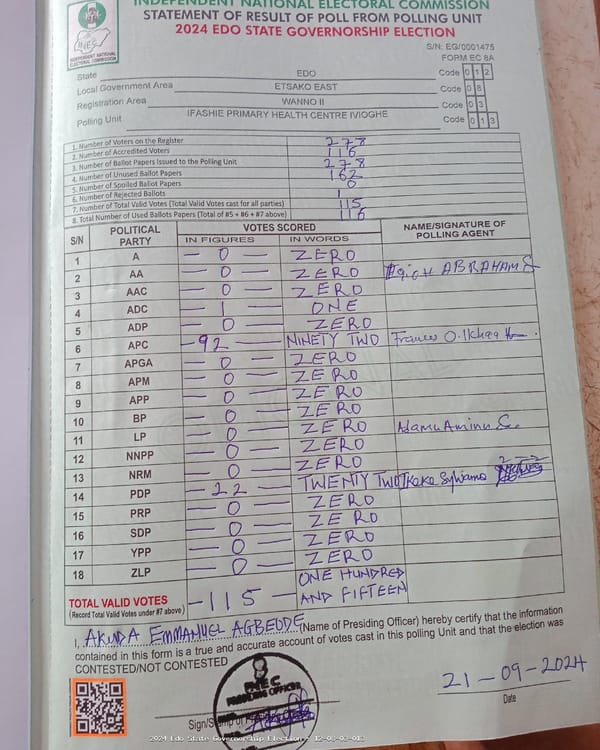 INDEPENDENT NATIONAL ELECTORAL COMMISSION
STATEMENT OF RESULT OF POLL FROM POLLING UNIT
2024 EDO STATE GOVERNORSHIP ELECTION
INEC
INDEPENDENT NATIONAL ELECTORAL COMMISSION
S/N: EG/0001475
FORM EC 8A
State EDO Code 0 1 2
Local Government Area ETSAKO EAST Code 0 8
Registration Area WANNO II Code 0 3
Polling Unit IFASHIE PRIMARY HEALTH CENTRE IVIOGHE Code 0 1 3
1. Number of Voters on the Register 278
2. Number of Accredited Voters 116
3. Number of Ballot Papers Issued to the Polling Unit 278
4. Number of Unused Ballot Papers 162
5. Number of Spoiled Ballot Papers 0
6. Number of Rejected Ballots 1
7. Number of Total Valid Votes (Total Valid Votes cast for all parties) 115
8. Total Number of Used Ballots Papers (Total of #5 + #6 + #7 above) 116
S/N POLITICAL PARTY VOTES SCORED NAME/SIGNATURE OF POLLING AGENT
IN FIGURES IN WORDS
1 A — 0 — ZERO
2 AA — 0 — ZERO ABRAHAM
3 AAC — 0 — ZERO
4 ADC — 1 — ONE
5 ADP — 0 — ZERO
6 APC — 92 — NINETY TWO
7 APGA — 0 — ZERO
8 APM — 0 — ZERO
9 APP — 0 — ZERO
10 BP — 0 — ZERO
11 LP — 0 — ZERO Adamu Aminu S.
12 NNPP — 0 — ZERO
13 NRM — 0 — ZERO
14 PDP — 22 — TWENTY TWO
15 PRP — 0 — ZERO
16 SDP — 0 — ZERO
17 YPP — 0 — ZERO
18 ZLP — 0 — ZERO
TOTAL VALID VOTES — 115 — ONE HUNDRED AND FIFTEEN
(Record Total Valid Votes under #7 above)
I, AKUDA EMMANUEL AGBEDDE (Name of Presiding Officer) hereby certify that the information
contained in this form is a true and accurate account of votes cast in this polling Unit and that the election was
CONTESTED/NOT CONTESTED
INEC
PRESIDING OFFICER
21-09-2024
Date
2024 Edo State Governorship Election - 12-08-03-013